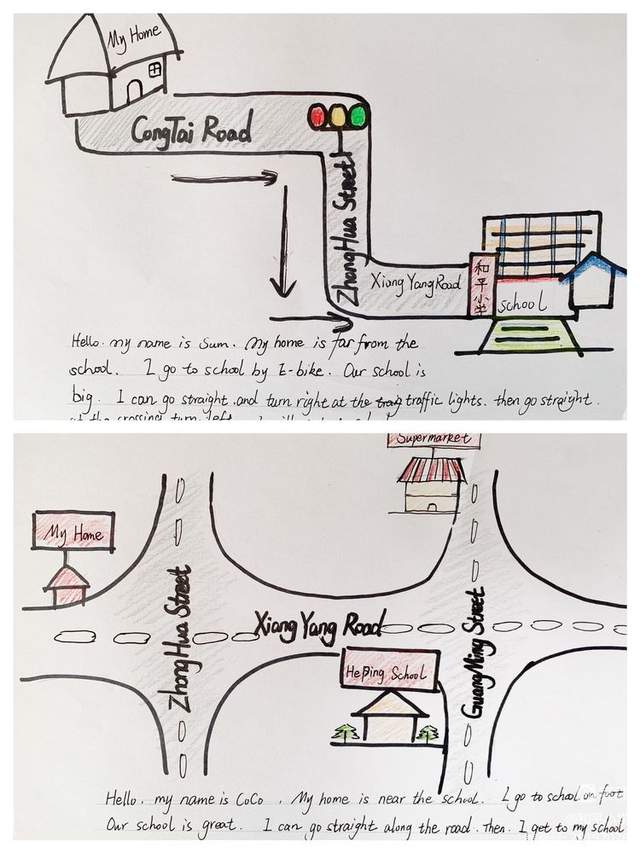 My Home
CongTai Road
ZhongHua Street
XiangYangRoad
和平小学
school
Hello. my name is Sum. My home is far from the
school. I go to school by E-bike. Our school is
big. I can go straight .and turn right at the traffic lights. then go straight.
at the crossing turn left
Supermarket
My Home
ZhongHua Street
XiangYang Road
GuangMing Street
HePing School
Hello. my name is CoCo . My home is near the school. I go to school on foot
Our school is great. I can go straight along the road. Then. I get to my school